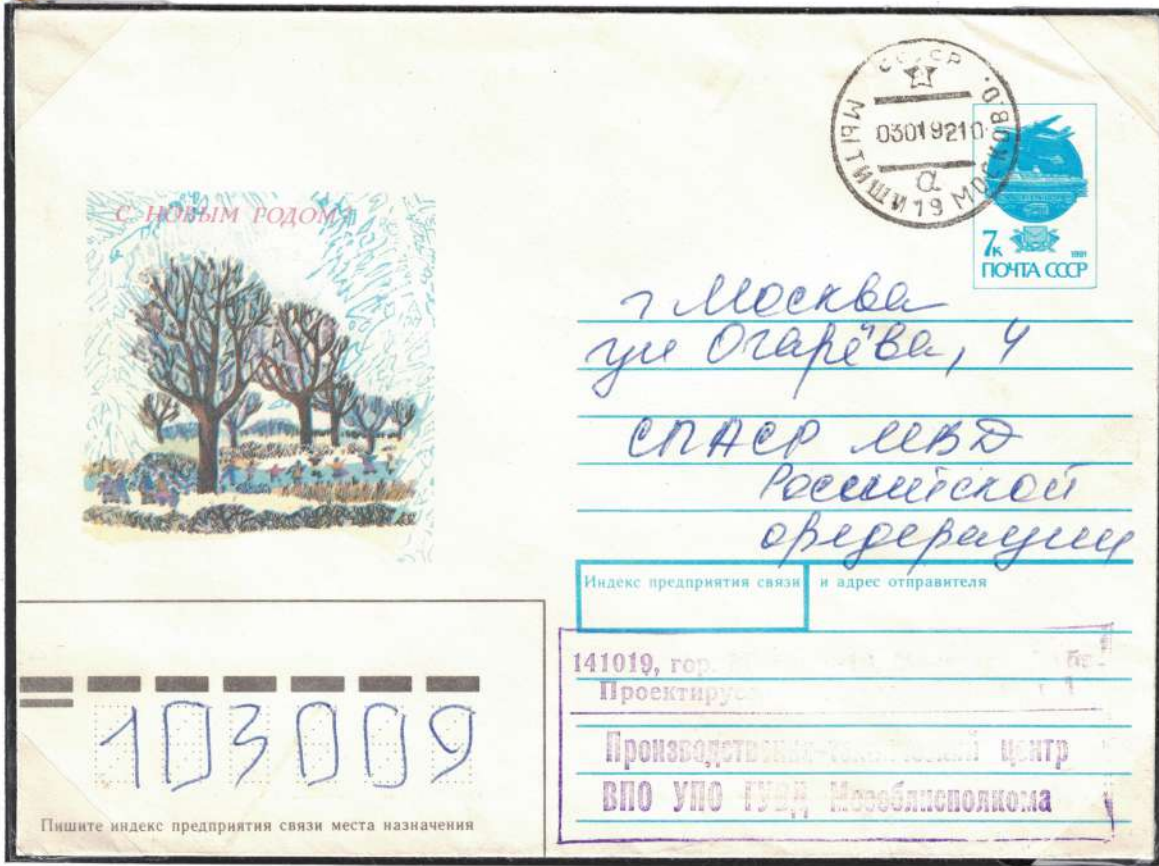 С НОВЫМ ГОДОМ!
СССР
МЫТИЩИ 19 МОСКОВ. О.
03019210
а
7к
1991
ПОЧТА СССР
г Москва
ул Огарёва, 4
СПАСР МВД
Российской
федерации
Индекс предприятия связи и адрес отправителя
141019, гор.
Проектиру
Производственно-технический центр
ВПО УПО ГУВД Мособлисполкома
103009
Пишите индекс предприятия связи места назначения